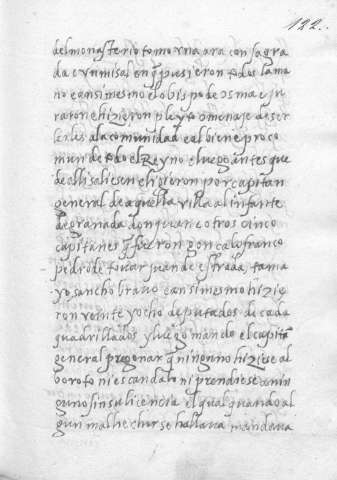 122.
del monasterio tomo vna ara consagra
da e vn misal en q̃ pusieron todos la ma
no e ansi mesmo el obispo de osma e ju
raron e hizieron pleyto omenaje de ser
leales a la comunidad e al bien e proco
mun de todo el Reyno e luego antes que
de alli saliesen eligieron por capitan
general de aquella villa al infante
de granada don juan e otros cinco
capitanes q̃ fueron gonçalo franco
pedro de tovar juan de estrada, tama
yo sancho bravo e ansi mesmo hizie
ron veinte y ocho deputados de cada
quadrilla dos y luego mando el capitã
general pregonar q̃ ninguno hiziese al
boroto ni escandalo ni prendiese a nin
guno sin su licencia el qual quando al
gun malhechor se hallava mandava